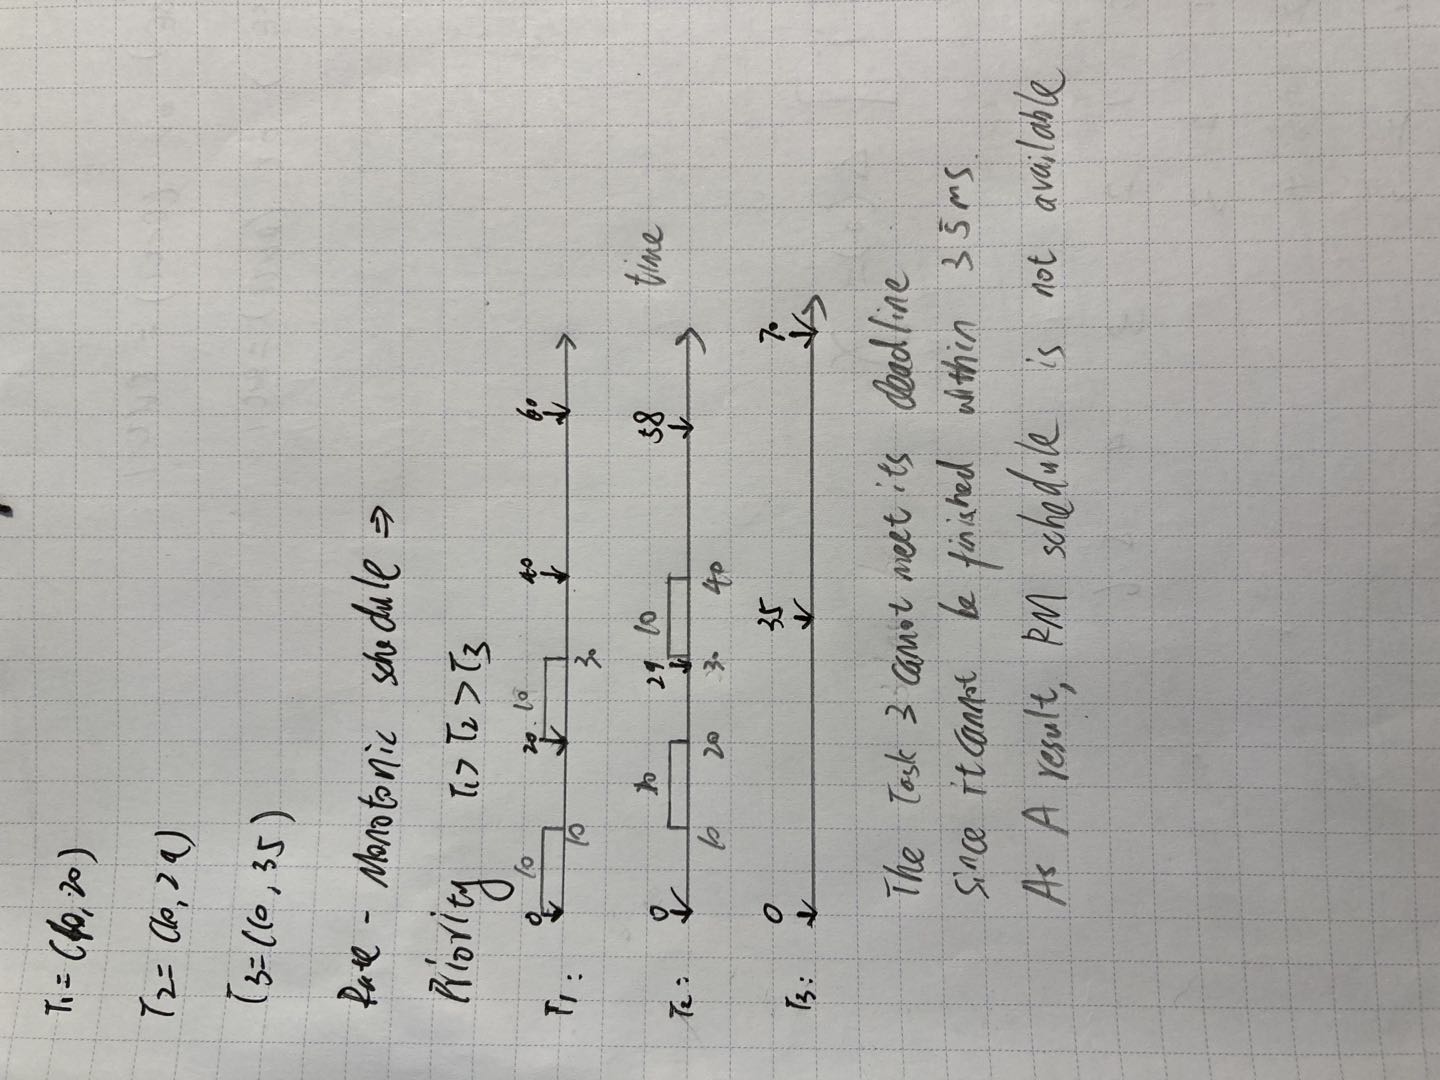 T₁ = (10, 20)
T₂ = (10, 29)
T₃ = (10, 35)
Rate - Monotonic schedule ⇒
Priority T₁ > T₂ > T₃
0 10 20 10 40 60
T₁:
10 30
0 10 29 10 58 time
T₂:
10 20 30 40
0 35 70
T₃:
The Task 3 cannot meet its deadline
since it cannot be finished within 35ms.
As A result, RM schedule is not available